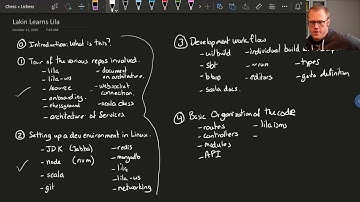 Chess > Lichess
Lakin Learns Lila
October 15, 2020 7:45 AM
⓪ Introduction: What is this?
① Tour of the various repos involved.
- lila
- lila-ws
- /source
- onboarding.
- chessground
- architecture of Services
- document on architecture.
- websocket connection.
- scala chess
② Setting up a dev environment in Linux.
- JDK
- node (nvm)
- scala
- git
- redis
- mongodb
- lila
- lila-ws
- networking
③ Development workflow
- ui/build
- sbt
- bloop
- scala docs.
- individual build
- ~run
- editors
- types
- goto definition
④ Basic Organization of the code
- routes
- controllers
- modules
- API
- lilaisms
-